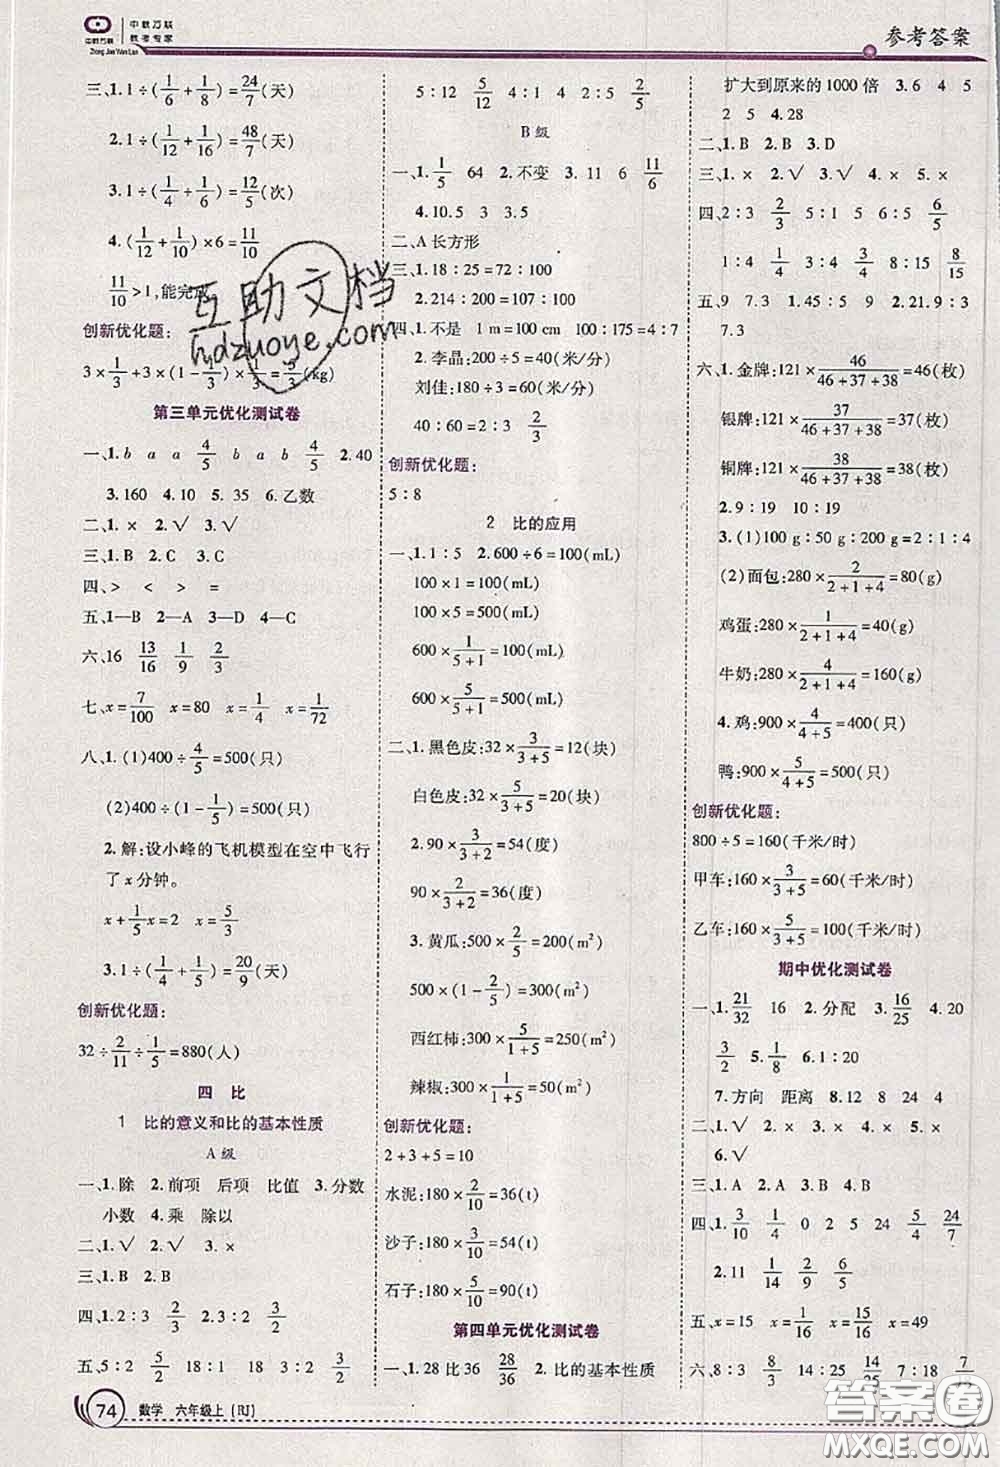 中教万联
中教万联
教考专家
Zhong Jiao Wan Lian
参考答案
三、1.1÷(1/6+1/8)=24/7(天)
2.1÷(1/12+1/16)=48/7(天)
3.1÷(1/4+1/6)=12/5(次)
4.(1/12+1/10)×6=11/10
11/10>1,能完成
创新优化题:
3×1/3+3×(1-1/3)×1/3=5/3(kg)
第三单元优化测试卷
一、1.b a a 4/5 b a b 4/5 2.40
3.160 4.10 5.35 6.乙数
二、1.× 2.√ 3.√
三、1.B 2.C 3.B
四、> < > =
五、1—B 2—A 3—D 4—C
六、16 13/16 1/9 2/3
七、x=7/100 x=80 x=1/4 x=1/72
八、1.(1)400÷4/5=500(只)
(2)400÷(1-1/5)=500(只)
2.解:设小峰的飞机模型在空中飞行
了x分钟。
x+1/5x=2 x=5/3
3.1÷(1/4+1/5)=20/9(天)
创新优化题:
32÷2/11÷1/5=880(人)
四 比
1 比的意义和比的基本性质
A级
一、1.除 2.前项 后项 比值 3.分数
小数 4.乘 除以
二、1.√ 2.√ 3.×
三、1.B 2.B
四、1.2:3 2/3 2.3:2 3/2
五、5:2 5/2 18:1 18 3:2 3/2
74 数学 六年级上(RJ)
5:12 5/12 4:1 4 2:5 2/5
B级
一、1.1/5 64 2.不变 3.11 6 11/6
4.10.5 3 3.5
二、A 长方形
三、1.18:25=72:100
2.214:200=107:100
四、1.不是 1m=100cm 100:175=4:7
2.李晶:200÷5=40(米/分)
刘佳:180÷3=60(米/分)
40:60=2:3 2/3
创新优化题:
5:8
2 比的应用
一、1.1:5 2.600÷6=100(mL)
100×1=100(mL)
100×5=500(mL)
600×1/(5+1)=100(mL)
600×5/(5+1)=500(mL)
二、1.黑色皮:32×3/(3+5)=12(块)
白色皮:32×5/(3+5)=20(块)
2.90×3/(3+2)=54(度)
90×2/(3+2)=36(度)
3.黄瓜:500×2/5=200(m²)
500×(1-2/5)=300(m²)
西红柿:300×5/(1+5)=250(m²)
辣椒:300×1/(1+5)=50(m²)
创新优化题:
2+3+5=10
水泥:180×2/10=36(t)
沙子:180×3/10=54(t)
石子:180×5/10=90(t)
第四单元优化测试卷
一、1.28比36 28/36 2.比的基本性质
扩大到原来的1000倍 3.6 4 5
2 5 4.28
二、1.B 2.B 3.D
三、1.× 2.√ 3.√ 4.× 5.×
四、2:3 2/3 5:1 5 6:5 6/5
1:4 1/4 3:4 3/4 8:15 8/15
五、9 7.3 1.45:5 9 2.21.9:3
7.3
六、1.金牌:121×46/(46+37+38)=46(枚)
银牌:121×37/(46+37+38)=37(枚)
铜牌:121×38/(46+37+38)=38(枚)
2.9:19 10:19
3.(1)100g:50g:200g=2:1:4
(2)面包:280×2/(2+1+4)=80(g)
鸡蛋:280×1/(2+1+4)=40(g)
牛奶:280×4/(2+1+4)=160(g)
4.鸡:900×4/(4+5)=400(只)
鸭:900×5/(4+5)=500(只)
创新优化题:
800÷5=160(千米/时)
甲车:160×3/(3+5)=60(千米/时)
乙车:160×5/(3+5)=100(千米/时)
期中优化测试卷
一、1.21/32 16 2.分配 3.16/25 4.20
3/2 5.1/8 6.1:20
7.方向 距离 8.12 8 24 4
二、1.√ 2.× 3.× 4.× 5.×
6.√
三、1.A 2.A 3.B 4.B
四、1.3/10 1/4 0 2 5 24 5/4 24/7
2.11 1/14 2/9 6/5
五、x=15 x=1/16 x=15/16 x=49
六、8:3 8/3 14:25 14/25 7:18
互助文档
hdzuoye.com
答案圈
MXQE.COM